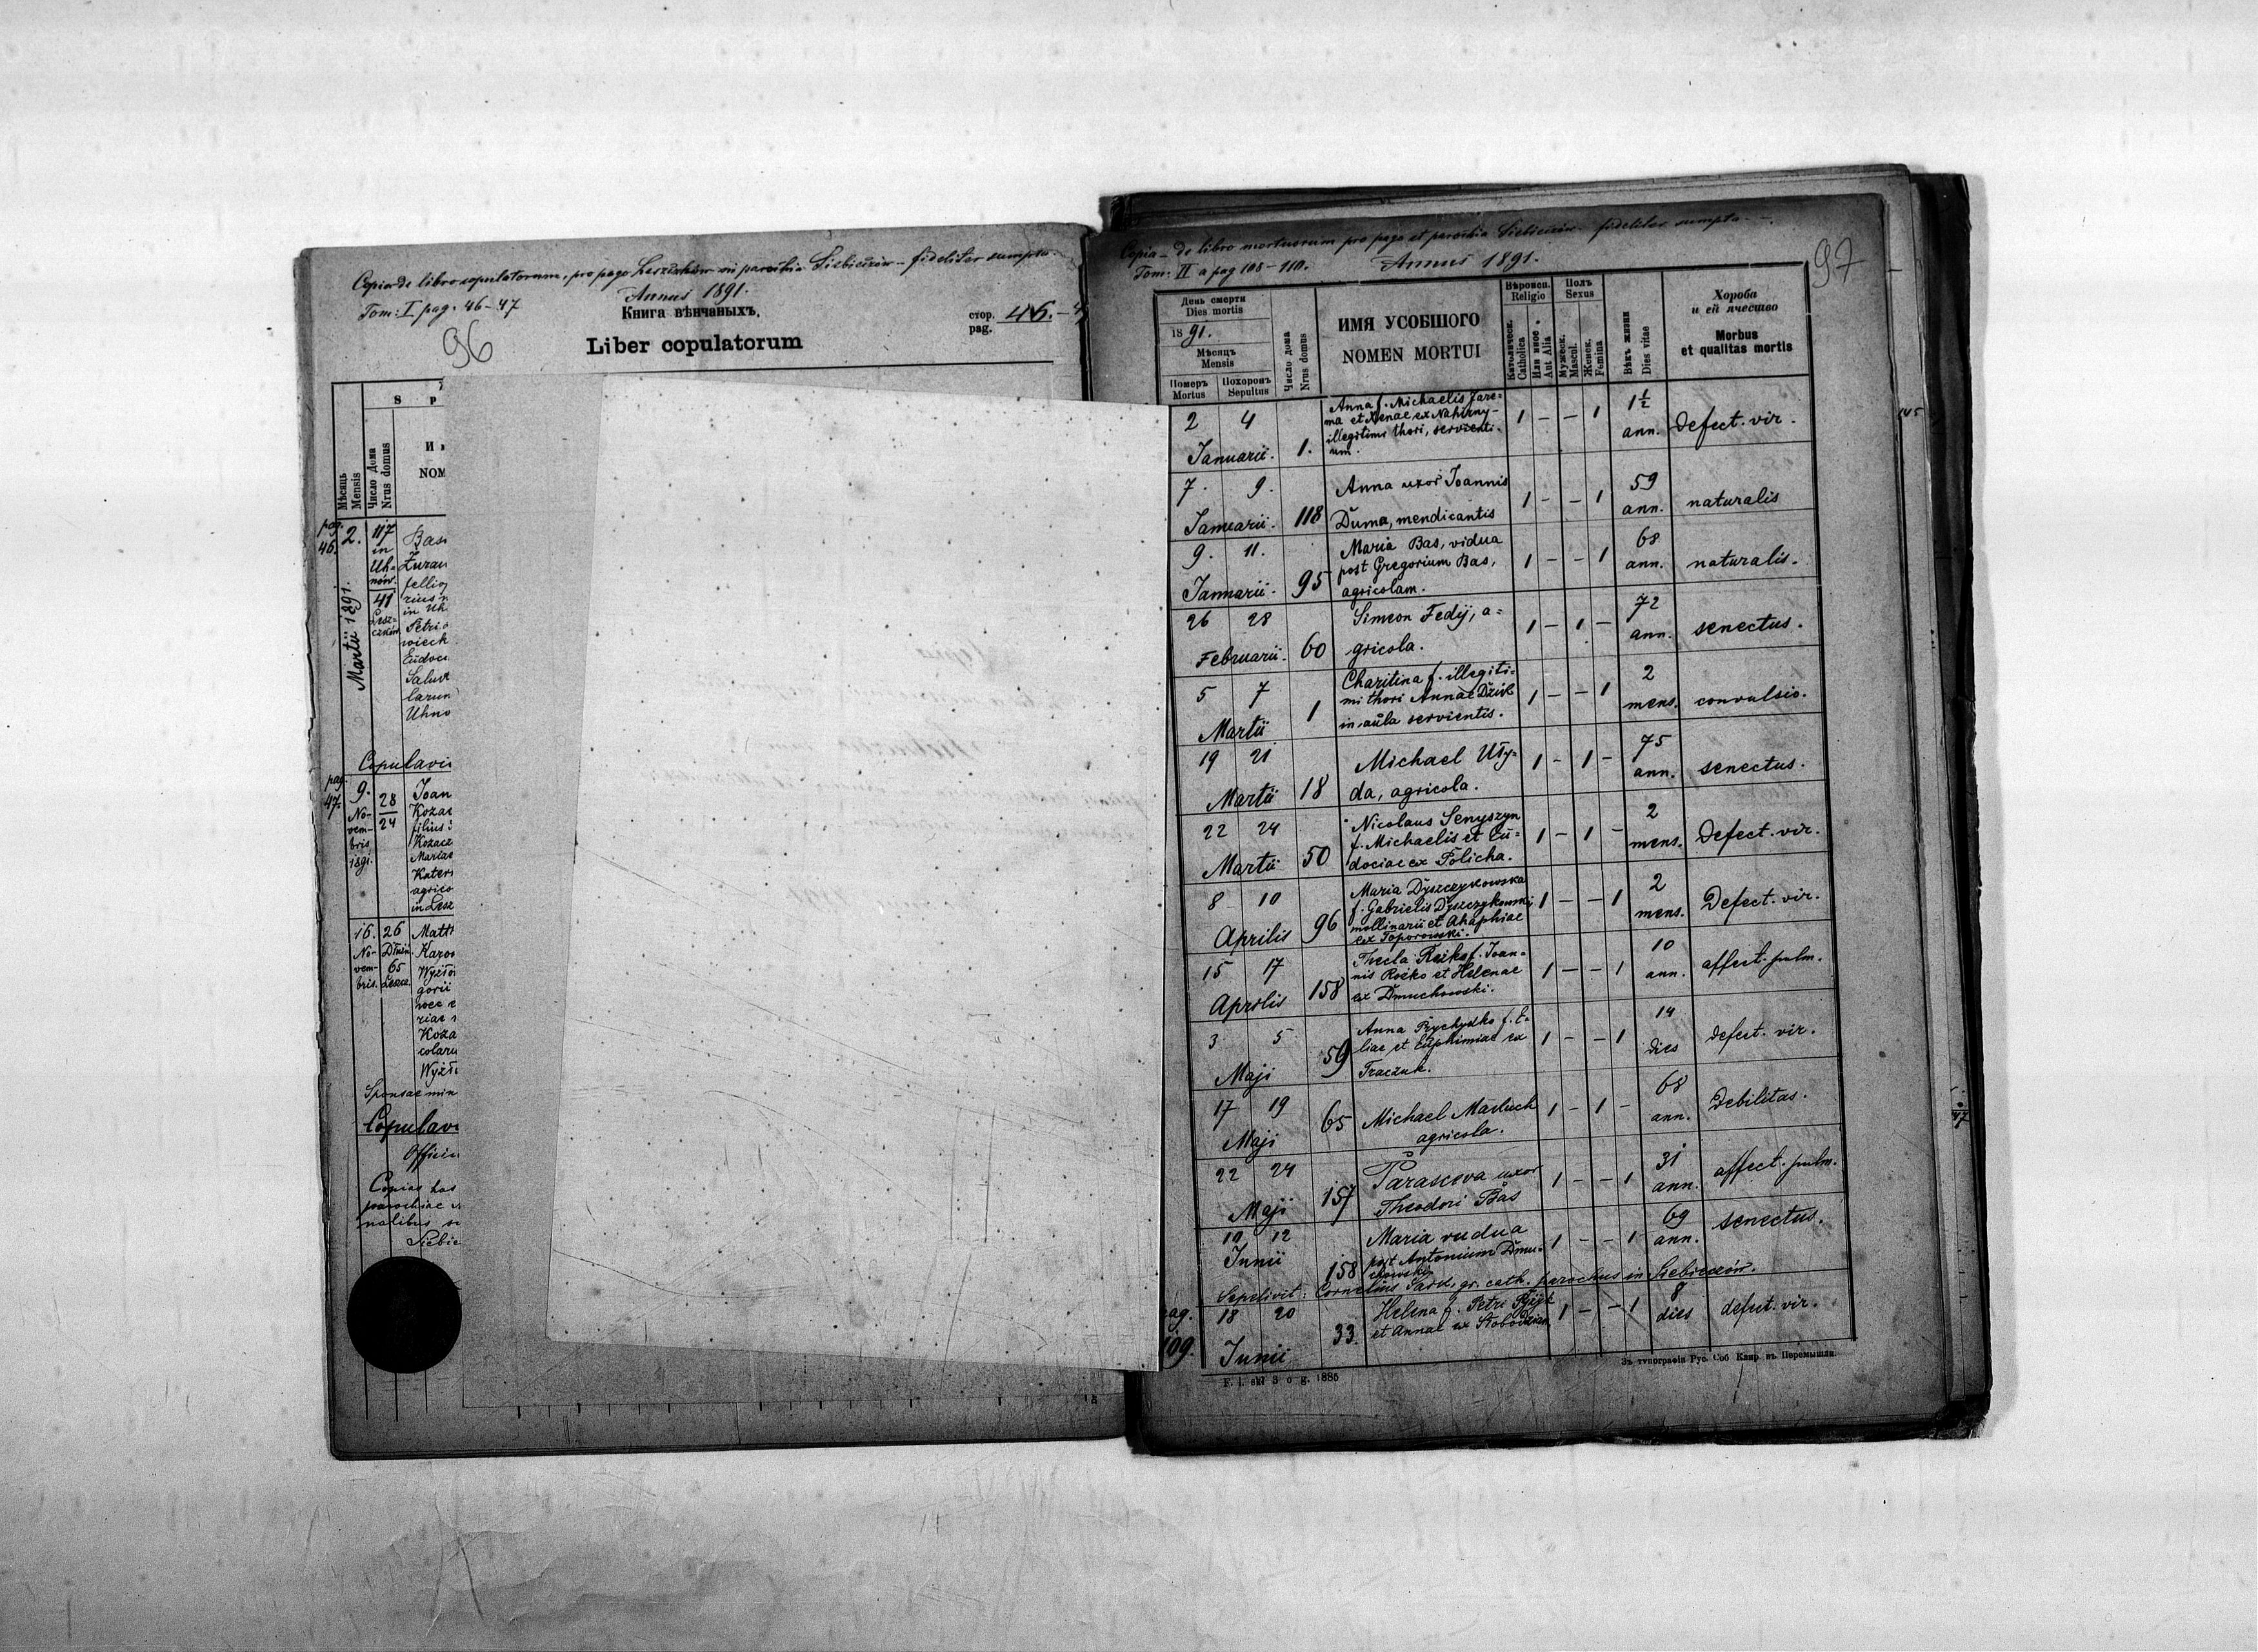 Copia de libro copulatorum, pro pago Leszczków in parochia Siebieczów - fideliter sumpta
Tom: I pag. 46-47
Annus 1891.
Книга вѣнчаныхъ.
стор.
pag. 46.-4
96
Liber copulatorum
S p
Мѣсяць
Mensis
Число Дома
Nrus domus
NOM
pag.
46.
2.
Martii 1891.
117
in
Uh=
nów.
41
Lesz=
czków
Bas
Żuraw
fellio
rius
in Uh
Petri
wiech
Eudoc
Saluk
larum
Uhno
Copulavi
pag.
47.
9.
No-
vem-
bris
1891.
28
24
Joan
Kozac
filius
Kozacz
Mariae
Kater
agrico
in Lesz
16.
No-
vem-
bris.
26
65
Leszcz.
Matt
Karo
Wyżło
gorii
riae
Koza
colaru
Wyżło
Sponsae min
Copulav
Offici
Copias has
parochiae
nalibus
Siebie
Copia - de libro mortuorum pro pago et parochia Siebieczów - fideliter sumpta -
Tom: II a pag 108-110. Annus 1891.
97
День смерти
Dies mortis
1891.
Мѣсяцъ
Mensis
Померъ
Mortus
Похоронъ
Sepultus
Число дома
Nrus domus
ИМЯ УСОБШОГО
NOMEN MORTUI
Вѣроисп.
Religio
Католическ.
Catholica
Или иное
Aut Alia
Полъ
Sexus
Мужеск.
Mascul.
Женск.
Femina
Вѣкъ жизни
Dies vitae
Хороба
и ей ячество
Morbus
et qualitas mortis
2 4 Januarii. 1.
Anna f. Michaelis Jare=
ma et Xenae ex Nahirny-
illegitimi thori, servienti-
um.
1 - - 1 1½ ann. defect. vir.
7. 9. Januarii. 118
Anna uxor Joannis
Duma, mendicantis
1 - - 1 59 ann. naturalis
9. 11. Januarii. 95
Maria Bas, vidua
post Gregorium Bas,
agricolam.
1 - - 1 68 ann. naturalis.
26 28 Februarii. 60
Simeon Fedij, a=
gricola.
1 - 1 - 72 ann. senectus.
5 7 Martii 1
Charitina f. illegiti=
mi thori Annae Dzik
in aula servientis.
1 - - 1 2 mens. convulsio.
19 21 Martii 18
Michael Uły=
da, agricola.
1 - 1 - 75 ann. senectus.
22 24 Martii 50
Nicolaus Senyszyn
f. Michaelis et Eu=
dociae ex Policha.
1 - 1 - 2 mens. defect. vir.
8 10 Aprilis 96
Maria Dyszczykowska
f. Gabrielis Dyszczykowski
mollinarii et Ahaphiae
ex Toporowski.
1 - - 1 2 mens. Defect. vir.
15 17 Aprilis 158
Thecla Rożko f. Joan-
nis Rożko et Helenae
ex Dmuchowski.
1 - - 1 10 ann. affect. pulm.
3 5 Maji 59
Anna Prychydko f. E-
liae et Euphimiae ex
Traczuk.
1 - - 1 14 dies defect. vir.
17 19 Maji 65
Michael Maeluch
agricola.
1 - 1 - 68 ann. Debilitas.
22 24 Maji 157
Parascova uxor
Theodori Bas
1 - - 1 31 ann. affect. pulm.
10 12 Junii 158
Maria vudua
post Antonium Dmu-
chowski
1 - - 1 69 ann. senectus.
Sepelivit: Cornelius gr. cath. parochus in Siebieczów.
pag.
109.
18 20 Junii 33.
Helena f. Petri
et Annae ex
1 - - 1 8 dies defect. vir.
1885
Зъ типографіи Рус. Соб Капр въ Перемышли.